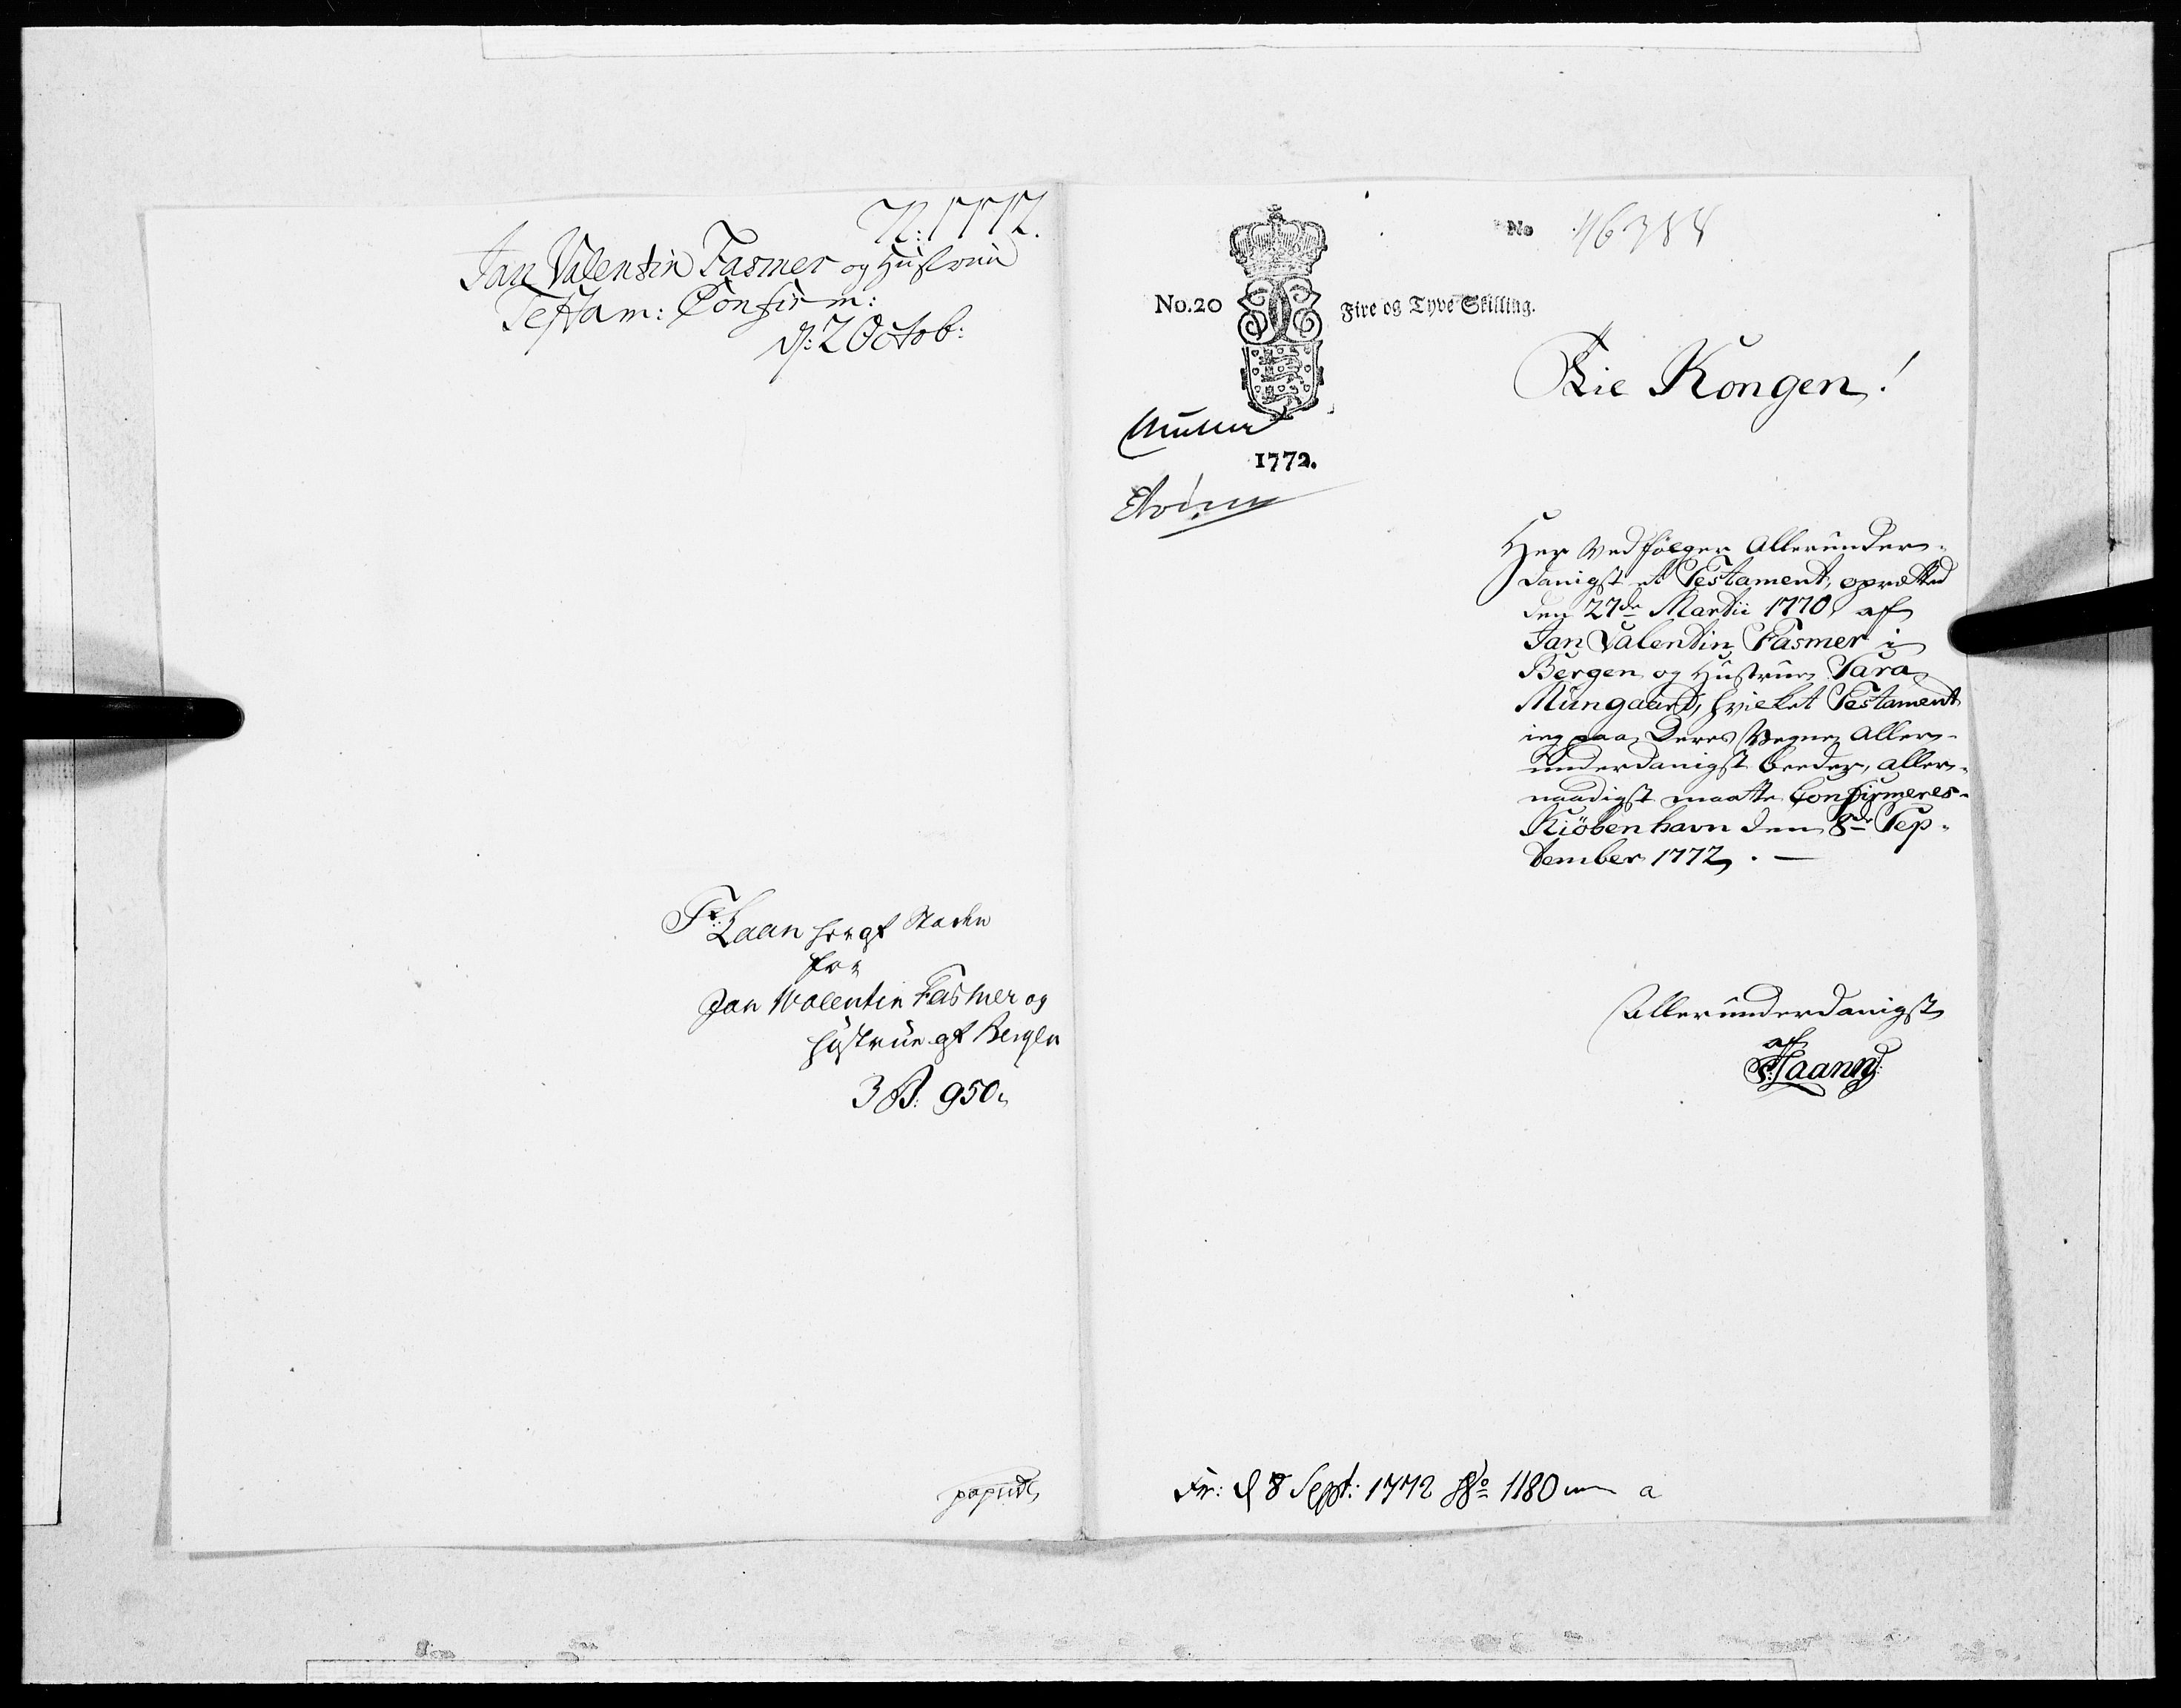 N: 1772.
Jan Valentin Fasmer og Hustrue
Testam: Confirm:
d: 2 Octob:
Fr. Laan her af Staden
for
Jan Valentin Fasmer og
Hustrue af Bergen
3 B: 950.
papiir
No 46388
No. 20 Fire og Tyve Skilling.
Til Kongen!
1772.
Her ved følger Allerunder-
danigst et Testament, oprætted
den 27de Martii 1770 af
Jan Valentin Fasmer i
Bergen og Hustrue Sara
Mungaard, hvilket Testament
ieg paa Deres Vegne Aller-
underdanigst beeder, aller-
naadigst maatte Confirmeres.
Kiöbenhavn den 8de Sep-
tember 1772. —
Allerunderdanigst
af
F: Laann
d 8 Sept: 1772 No 1180 a